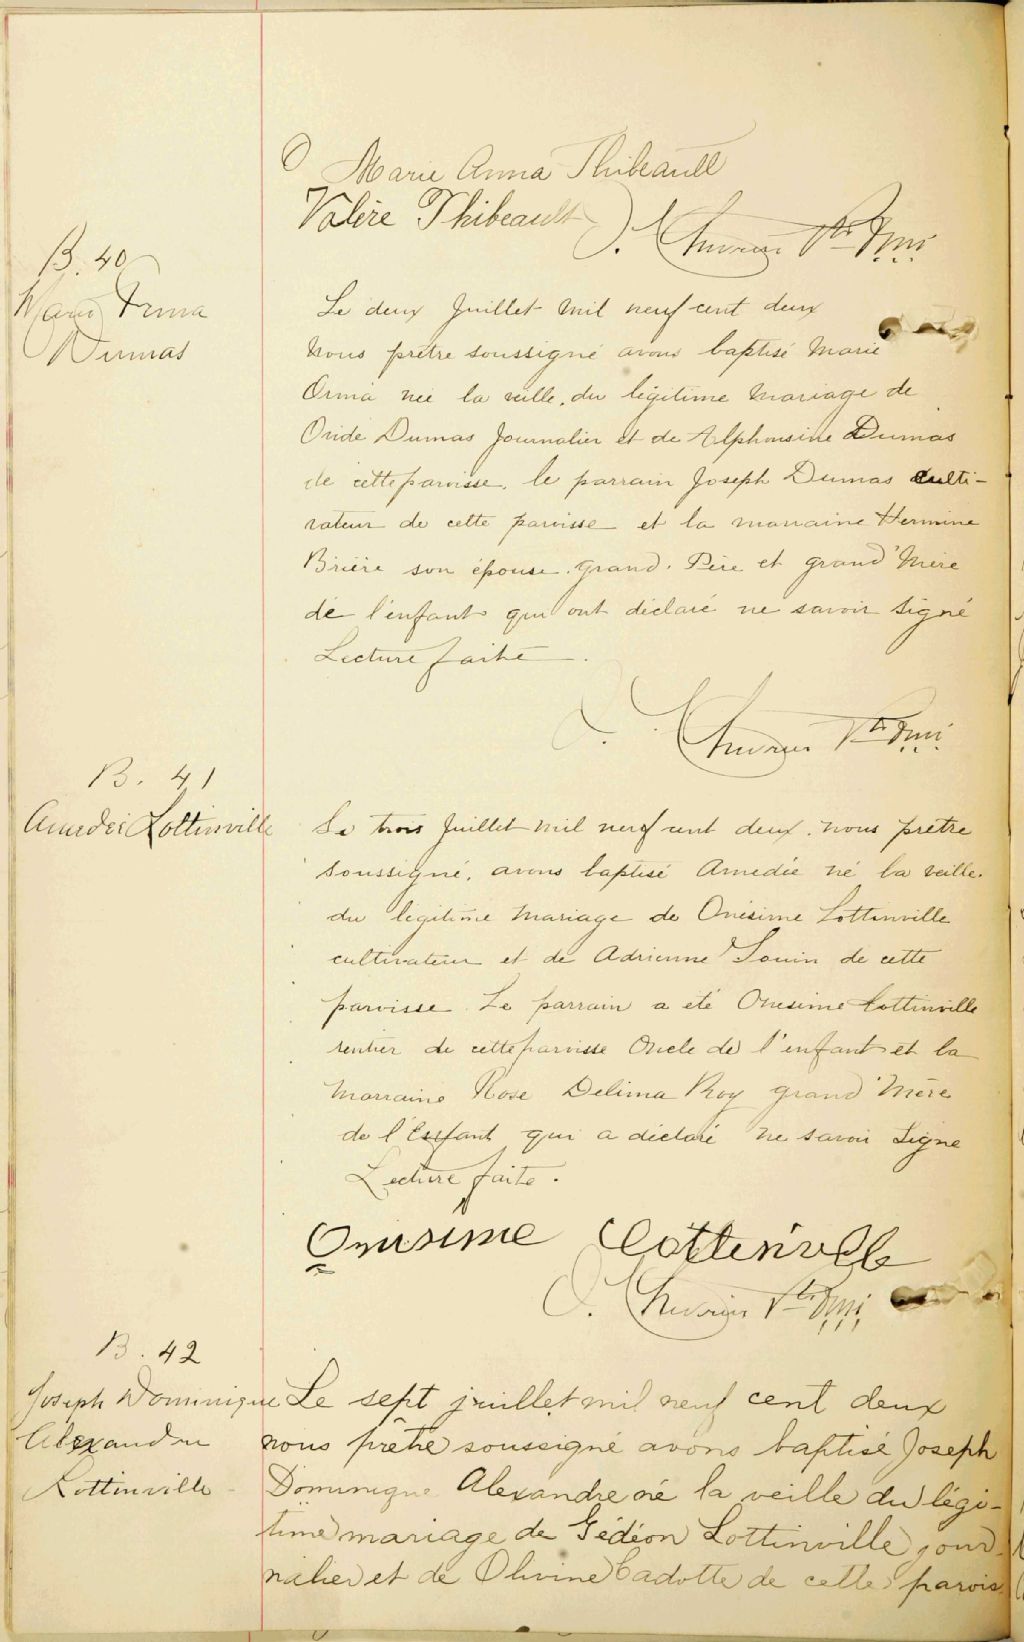 Marie Anna Thibeault
Valère Thibeault
J. E. Chevrin Ptr
B. 40
Marie Irma
Dumas
Le deux Juillet mil neuf cent deux
nous prêtre soussigné avons baptisé Marie
Orma née la veille, du légitime mariage de
Ovide Dumas Journalier et de Alphonsine Dumas
de cette paroisse. le parrain Joseph Dumas culti-
vateur de cette paroisse et la marraine Hermine
Brière son épouse. grand. Père et grand'Mère
de l'enfant qui ont déclaré ne savoir signé
Lecture faite.
Ptr
B. 41
Amedée Lottinville
Le trois Juillet mil neuf cent deux. nous prêtre
soussigné, avons baptisé Amedée né la veille.
du légitime mariage de Onésime Lottinville
cultivateur et de Adrienne Jouin de cette
paroisse. Le parrain a été Onesime Lottinville
rentier de cette paroisse Oncle de l'enfant et la
marraine Rose Delima Roy grand'Mère
de l'Enfant qui a déclaré ne savoir signe
Lecture faite.
Onisime Lottenville
Ptr
B. 42
Joseph Dominique
Alexandre
Lottinville
Le sept juillet mil neuf cent deux
nous prêtre soussigné avons baptisé Joseph
Dominique Alexandre né la veille du légi-
time mariage de Gédéon Lottinville jour-
nalier et de Olivine Cadotte de cette parois